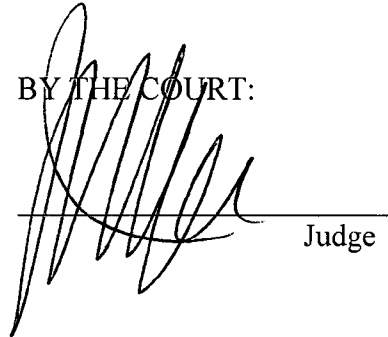 BY THE COURT:
Judge